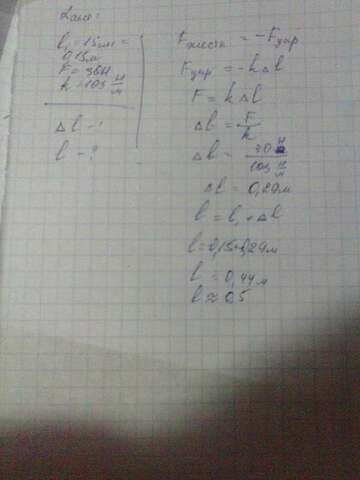 Дано:
l₁ = 15 см =
0,15 м
F = 30 Н
k = 103 Н/м
Δl - ?
l - ?
= -Fупр
Fупр = -kΔl
F = kΔl
Δl = F/k
Δl = 30 Н / 103 Н/м
Δl = 0,29 м
l = l₁ + Δl
l = 0,15+0,29м
l = 0,44 м
l ≈ 0,5